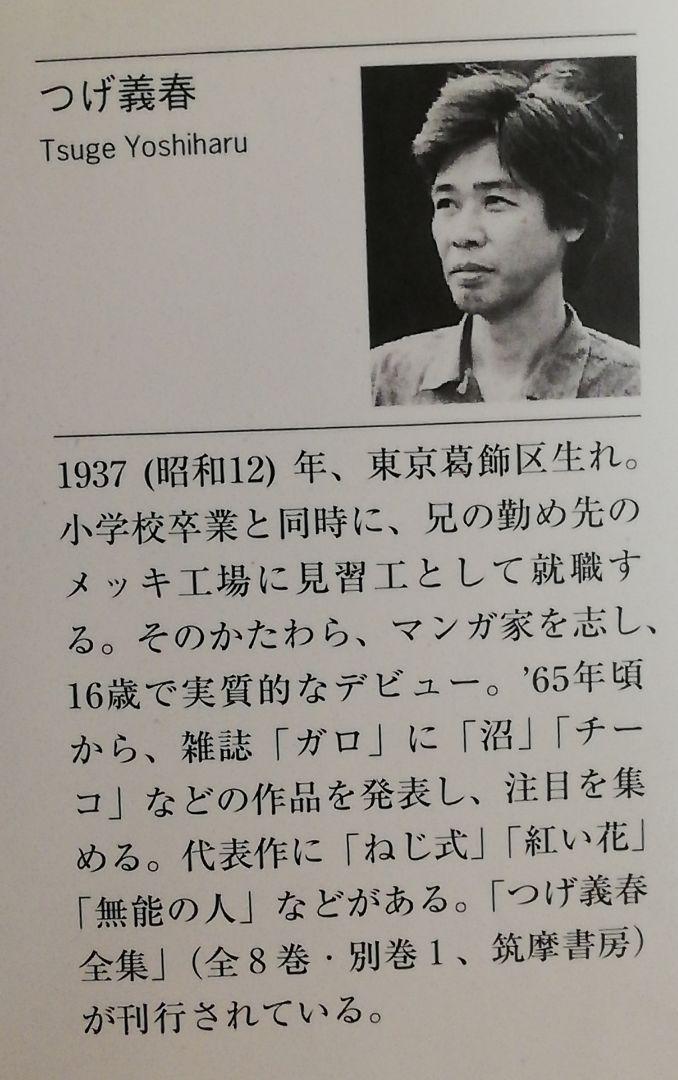 つげ義春
Tsuge Yoshiharu
1937 (昭和12) 年、東京葛飾区生れ。
小学校卒業と同時に、兄の勤め先の
メッキ工場に見習工として就職す
る。そのかたわら、マンガ家を志し、
16歳で実質的なデビュー。’65年頃
から、雑誌「ガロ」に「沼」「チー
コ」などの作品を発表し、注目を集
める。代表作に「ねじ式」「紅い花」
「無能の人」などがある。「つげ義春
全集」（全8巻・別巻1、筑摩書房）
が刊行されている。